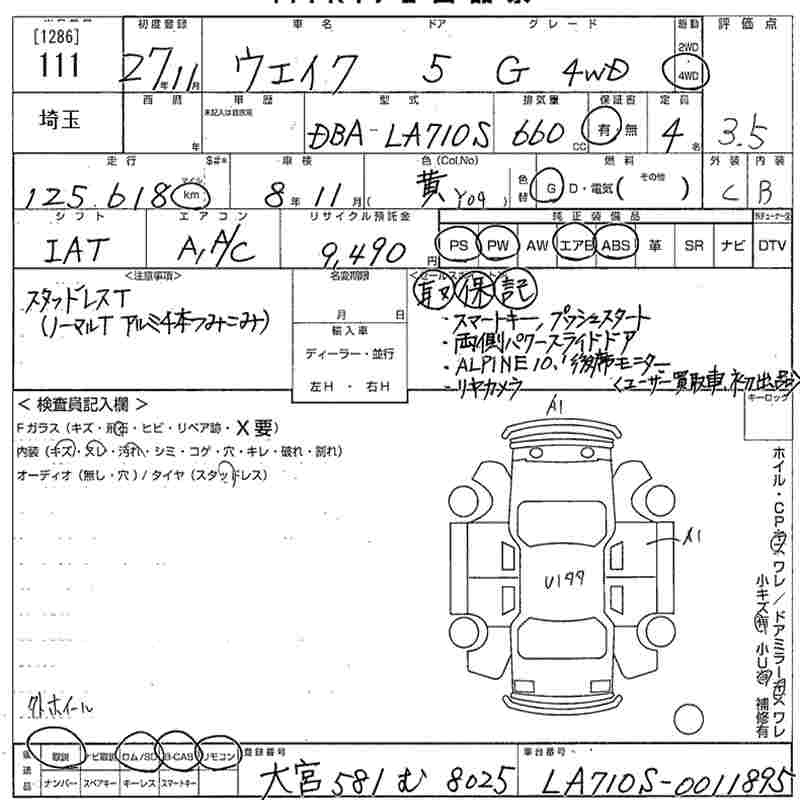 [1286]
111
初度登録 車名 ドア グレード 駆動 評価点
27年11月 ウェイク 5 G 4WD 2WD 4WD
埼玉
西暦 車歴 型式 排気量 保証書 定員
未記入は自家用
年 DBA-LA710S 660cc 有・無 4名 3.5
走行 $#* 車検 色(Col.No) 燃料 外装 内装
125,618 マイル km 8年11月( 黄 Y09 ) 色替 G D・電気( その他 ) C B
シフト エアコン リサイクル預託金 純正装備品
IAT A,A/C 9,490円 PS PW AW エアB ABS 革 SR ナビ DTV
<注意事項> 名変期限 <セールスポイント>
スタッドレスT
(ノーマルT アルミ4本つみこみ)
月 日
輸入車
ディーラー・並行
左H ・ 右H
取 保 記
・スマートキー, プッシュスタート
・両側パワースライドドア
・ALPINE10, 後席モニター
・リヤカメラ <ユーザー買取車、初出品>
キーロック
< 検査員記入欄 >
Fガラス(キズ・飛石・ヒビ・リペア跡・X要)
内装(キズ・スレ・汚れ・シミ・コゲ・穴・キレ・破れ・割れ)
オーディオ(無し・穴)/ タイヤ(スタッドレス)
A1
A1
U1
ホイル・CPキズ ワレ / ドアミラーキズ ワレ
小キズ有 小U有 補修有
外ホイール
後送品
取説 ナビ取説 ロム/SD B-CAS リモコン
ナンバー スペアキー キーレス スマートキー
登録番号
大宮 581 む 8025
車台番号
LA710S-0011895